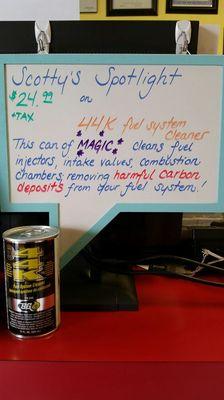 Scotty's Spotlight
$24.99 on
+TAX
44K fuel system
cleaner
This can of *MAGIC* cleans fuel
injectors, intake valves, combustion
chambers; removing harmful carbon
deposits from your fuel system!
44K
BG